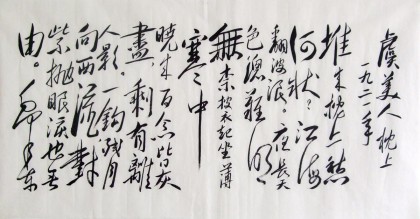 虞美人 枕上
一九二一年
堆来枕上愁
何状?江海
翻波浪。夜長天
色總難明,
無奈披衣起坐薄
寒中
曉来百念皆灰
盡,剩有離
人影。一鈎殘月
向西流,對
此不抛眼淚也無
由。毛泽东